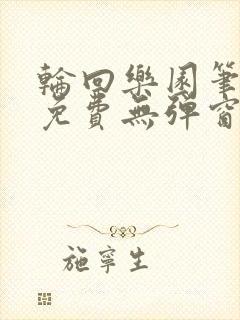 輪回樂園筆
免費無彈窗
施寧生